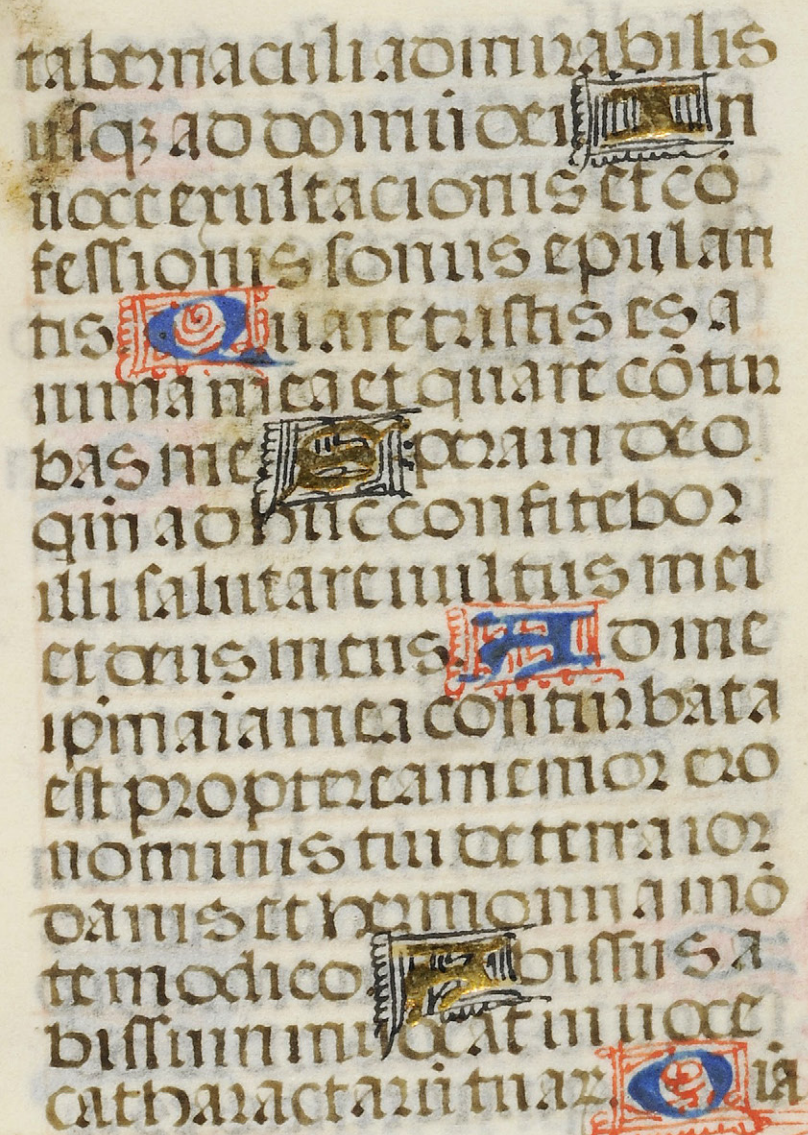 tabernaculi admirabilis
usqz ad domu dei In
uoce exultacionis et cō
fessionis sonus epulan
tis. Quare tristis es a
nima mea et quare cōtur
bas me Spera in deo
qm̄ adhuc confitebor
illi salutare uultus mei
et deus meus. Ad me
ip̄m aīa mea conturbata
est propterea memor ero
nominis tui de terra ior
danis et hermonii a mō
te modico Abissus a
bissum inuocat in uoce
catharactarū tuar. Oīa